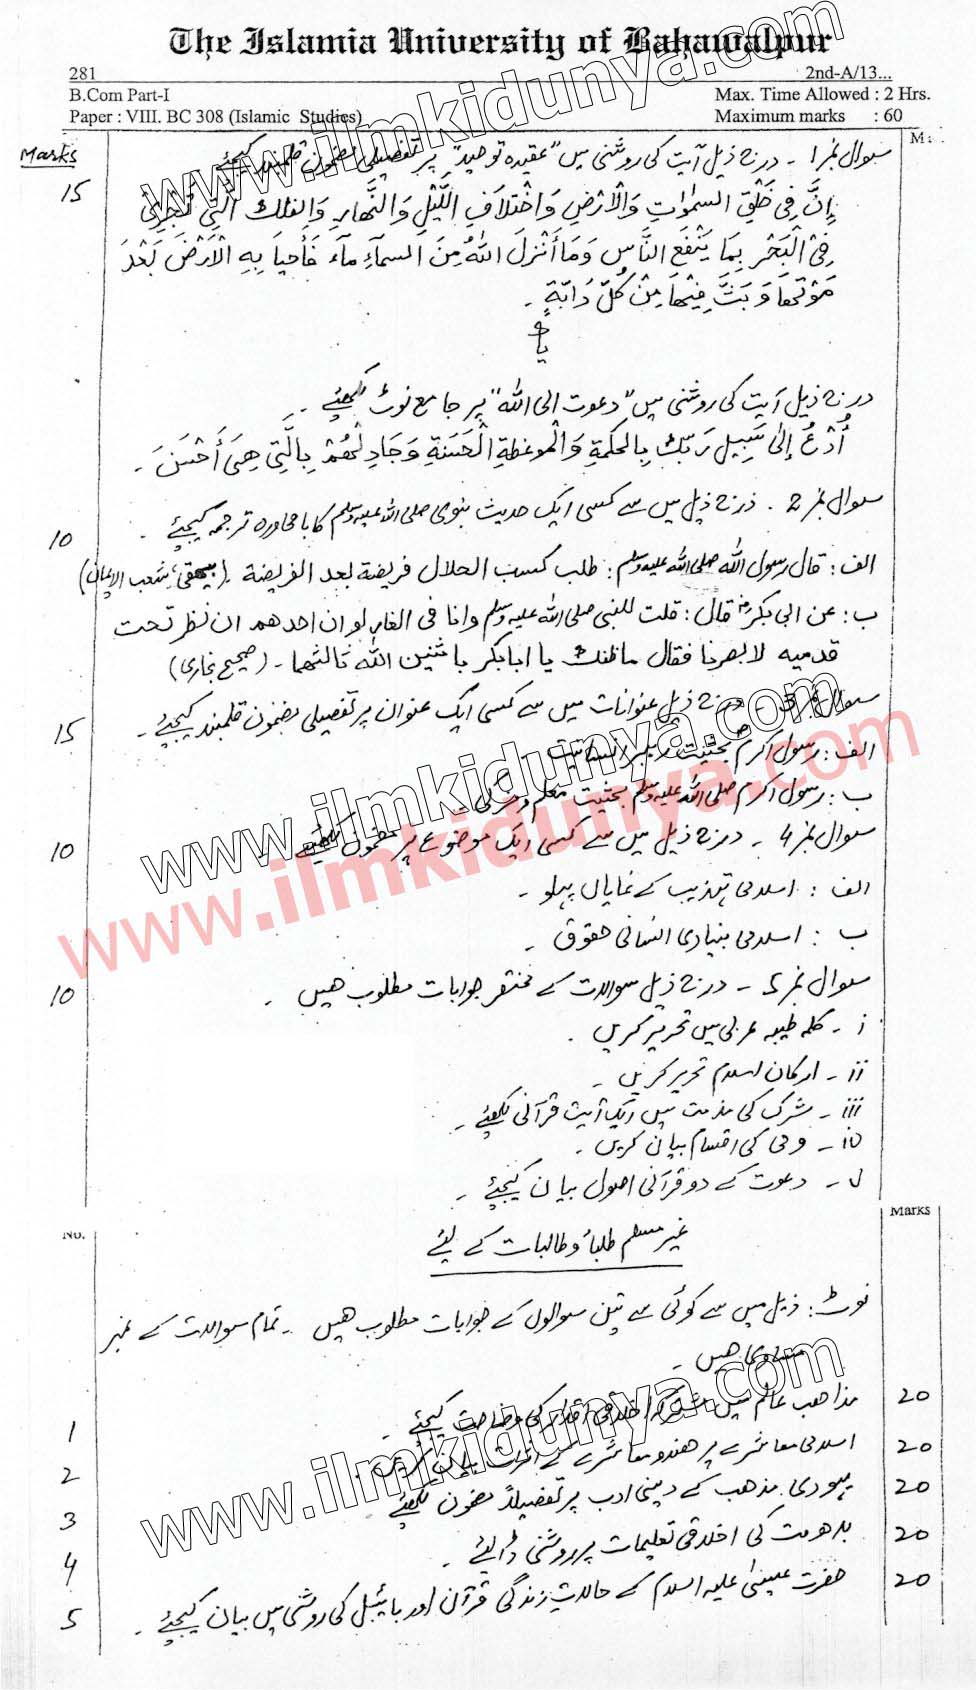 The Islamia University of Bahawalpur
281 2nd-A/13...
B.Com Part-I Max. Time Allowed : 2 Hrs.
Paper : VIII. BC 308 (Islamic Studies) Maximum marks : 60
Marks
سوال نمبر 1 ۔ درج ذیل آیت کی روشنی میں "عقیدہ توحید" پر تفصیلی مضمون قلمبند کیجئے 15
إِنَّ فِي خَلْقِ السَّمٰوَاتِ وَالْأَرْضِ وَاخْتِلَافِ اللَّيْلِ وَالنَّهَارِ وَالْفُلْكِ الَّتِي تَجْرِي
فِي الْبَحْرِ بِمَا يَنْفَعُ النَّاسَ وَمَا أَنْزَلَ اللَّهُ مِنَ السَّمَآءِ مَآءً فَأَحْيَا بِهِ الْأَرْضَ بَعْدَ
مَوْتِهَا وَبَثَّ فِيْهَا مِنْ كُلِّ دَابَّةٍ ۔
یا
درج ذیل آیت کی روشنی میں "دعوت الی اللہ" پر جامع نوٹ لکھئے ۔
أُدْعُ إِلَىٰ سَبِيلِ رَبِّكَ بِالْحِكْمَةِ وَالْمَوْعِظَةِ الْحَسَنَةِ وَجَادِلْهُمْ بِالَّتِي هِيَ أَحْسَنُ ۔
سوال نمبر 2 ۔ درج ذیل میں سے کسی ایک حدیث نبوی صلی اللہ علیہ وسلم کا بامحاورہ ترجمہ کیجئے ۔ 10
الف : قال رسول اللہ صلی اللہ علیہ وسلم : طلب کسب الحلال فریضة بعد الفریضة ۔ (بیہقی، شعب الایمان)
ب : عن ابی بکرؓ قال : قلت للنبی صلی اللہ علیہ وسلم وانا فی الغار لو ان احدھم ان نظر تحت
قدمیہ لابصرنا فقال ما ظنک یا ابابکر باثنین اللہ ثالثھما ۔ (صحیح بخاری)
سوال نمبر 3 ۔ درج ذیل عنوانات میں سے کسی ایک عنوان پر تفصیلی مضمون قلمبند کیجئے ۔ 15
الف : رسول اکرمؐ بحثیت رہبر انسانیت
ب : رسول اکرم صلی اللہ علیہ وسلم بحثیت معلم و مزکی
سوال نمبر 4 ۔ درج ذیل میں سے کسی ایک موضوع پر مضمون لکھئے 10
الف : اسلامی تہذیب کے نمایاں پہلو ۔
ب : اسلامی بنیادی انسانی حقوق ۔
سوال نمبر 5 ۔ درج ذیل سوالات کے مختصر جوابات مطلوب ھیں ۔ 10
i ۔ کلمہ طیبہ عربی میں تحریر کریں ۔
ii ۔ ارکان اسلام تحریر کریں ۔
iii ۔ شرک کی مذمت میں ایک آیت قرآنی لکھئے ۔
iv ۔ وحی کی اقسام بیان کریں ۔
v ۔ دعوت کے دو قرآنی اصول بیان کیجئے ۔
No. Marks
غیر مسلم طلباء و طالبات کے لئے
نوٹ : ذیل میں سے کوئی سے تین سوالوں کے جوابات مطلوب ھیں ۔ تمام سوالات کے نمبر
مساوی ھیں ۔
1 مذاھب عالم میں مشترکہ اخلاقی اقدار کی وضاحت کیجئے ۔ 20
2 اسلامی معاشرے پر ھندو معاشرے کے اثرات بیان کریں ۔ 20
3 یہودی مذھب کے دینی ادب پر تفصیلاً مضمون لکھئے 20
4 بدھ مت کی اخلاقی تعلیمات پر روشنی ڈالئے ۔ 20
5 حضرت عیسیٰ علیہ السلام کے حالات زندگی قرآن اور بائیبل کی روشنی میں بیان کیجئے ۔ 20
www.ilmkidunya.com
www.ilmkidunya.com
www.ilmkidunya.com
www.ilmkidunya.com